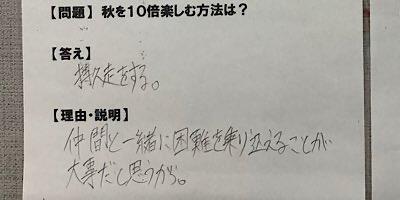 【問題】秋を10倍楽しむ方法は？
【答え】
持久走をする。
【理由・説明】
仲間と一緒に困難を乗り込えることが
大事だと思うから。